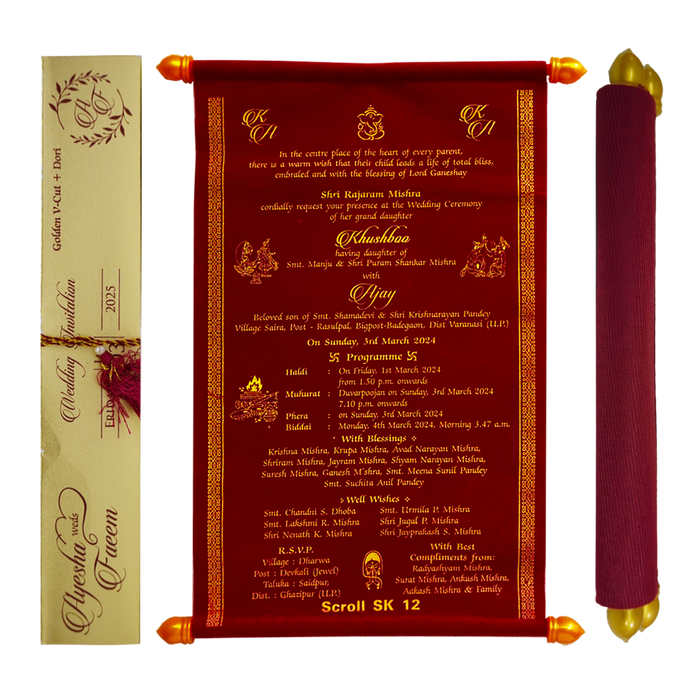 A F
Golden V-Cut + Dori
Wedding Invitation
2025
Ayesha
weds
Faeem
K
A
K
A
In the centre place of the heart of every parent,
there is a warm wish that their child leads a life of total bliss,
embraled and with the blessing of Lord Ganeshay
Shri Rajaram Mishra
cordially request your presence at the Wedding Ceremony
of her grand daughter
Khushboo
having daughter of
Smt. Manju & Shri Puram Shankar Mishra
with
Ajay
Beloved son of Smt. Shamadevi & Shri Krishnarayan Pandey
Village Saira, Post - Rasulpal, Bigpost-Badegaon, Disi Varanasi (U.P.)
On Sunday, 3rd March 2024
卐 Programme 卐
Haldi : On Friday, 1st March 2024
from 1.50 p.m. onwards
Muhurat : Duvarpoojan on Sunday, 3rd March 2024
7.10 p.m. onwards
Phera : on Sunday, 3rd March 2024
Biddai : Monday, 4th March 2024, Morning 3.47 a.m.
With Blessings
Krishna Mishra, Krupa Mishra, Avad Narayan Mishra,
Shriram Mishra, Jayram Mishra, Shyam Narayan Mishra,
Suresh Mishra, Ganesh M'shra, Smt. Meena Sunil Pandey
Smt. Suchita Anil Pandey
Well Wishes
Smt. Chandni S. Dhoba Smt. Urmila P. Mishra
Smt. Lakshmi R. Mishra Shri Jugal P. Mishra
Shri Nenath K. Mishra Shri Jayprakash S. Mishra
R.S.V.P.
Village : Dharwa
Post : Devkali (Jewel)
Taluka : Saidpur,
Dist. : Ghazipur (U.P.)
With Best
Compliments from:
Radyashyam Mishra,
Surat Mishra, Ankush Mishra,
Aakash Mishra & Family
Scroll SK 12